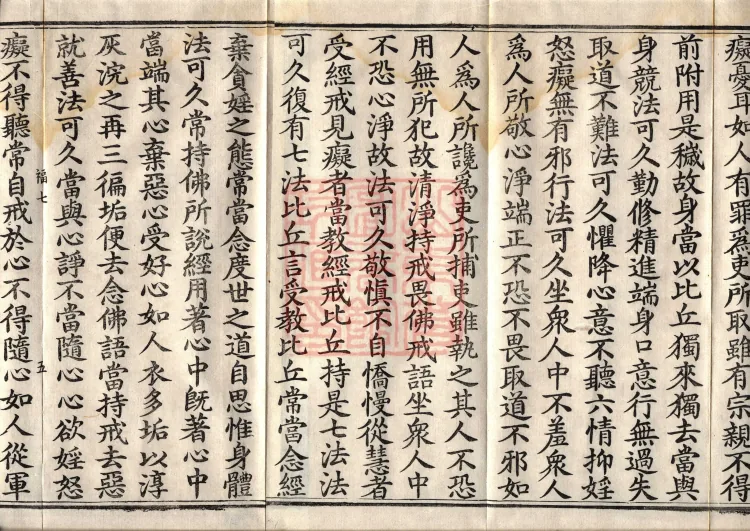 癡憂耳如人有罪爲吏所取雖有宗親不得
前附用是穢故身當以比丘獨來獨去當與
身競法可久勤修精進端身口意行無過失
取道不難法可久懼降心意不聽六情抑婬
怒癡無有邪行法可久坐衆人中不羞衆人
爲人所敬心淨端正不恐不畏取道不邪如
人爲人所讒爲吏所捕吏雖執之其人不恐
用無所犯故清淨持戒畏佛戒語坐衆人中
不恐心淨故法可久敬愼不自憍慢從慧者
受經戒見癡者當教經戒比丘持是七法法
可久復有七法比丘言受教比丘常當念經
棄貪婬之態常當念度世之道自思惟身體
法可久常持佛所說經用著心中旣著心中
當端其心棄惡心受好心如人衣多垢以淳
灰浣之再三徧垢便去念佛語當持戒去惡
就善法可久當與心諍不當隨心心欲婬怒
福七 五
癡不得聽常自戒於心不得隨心如人從軍